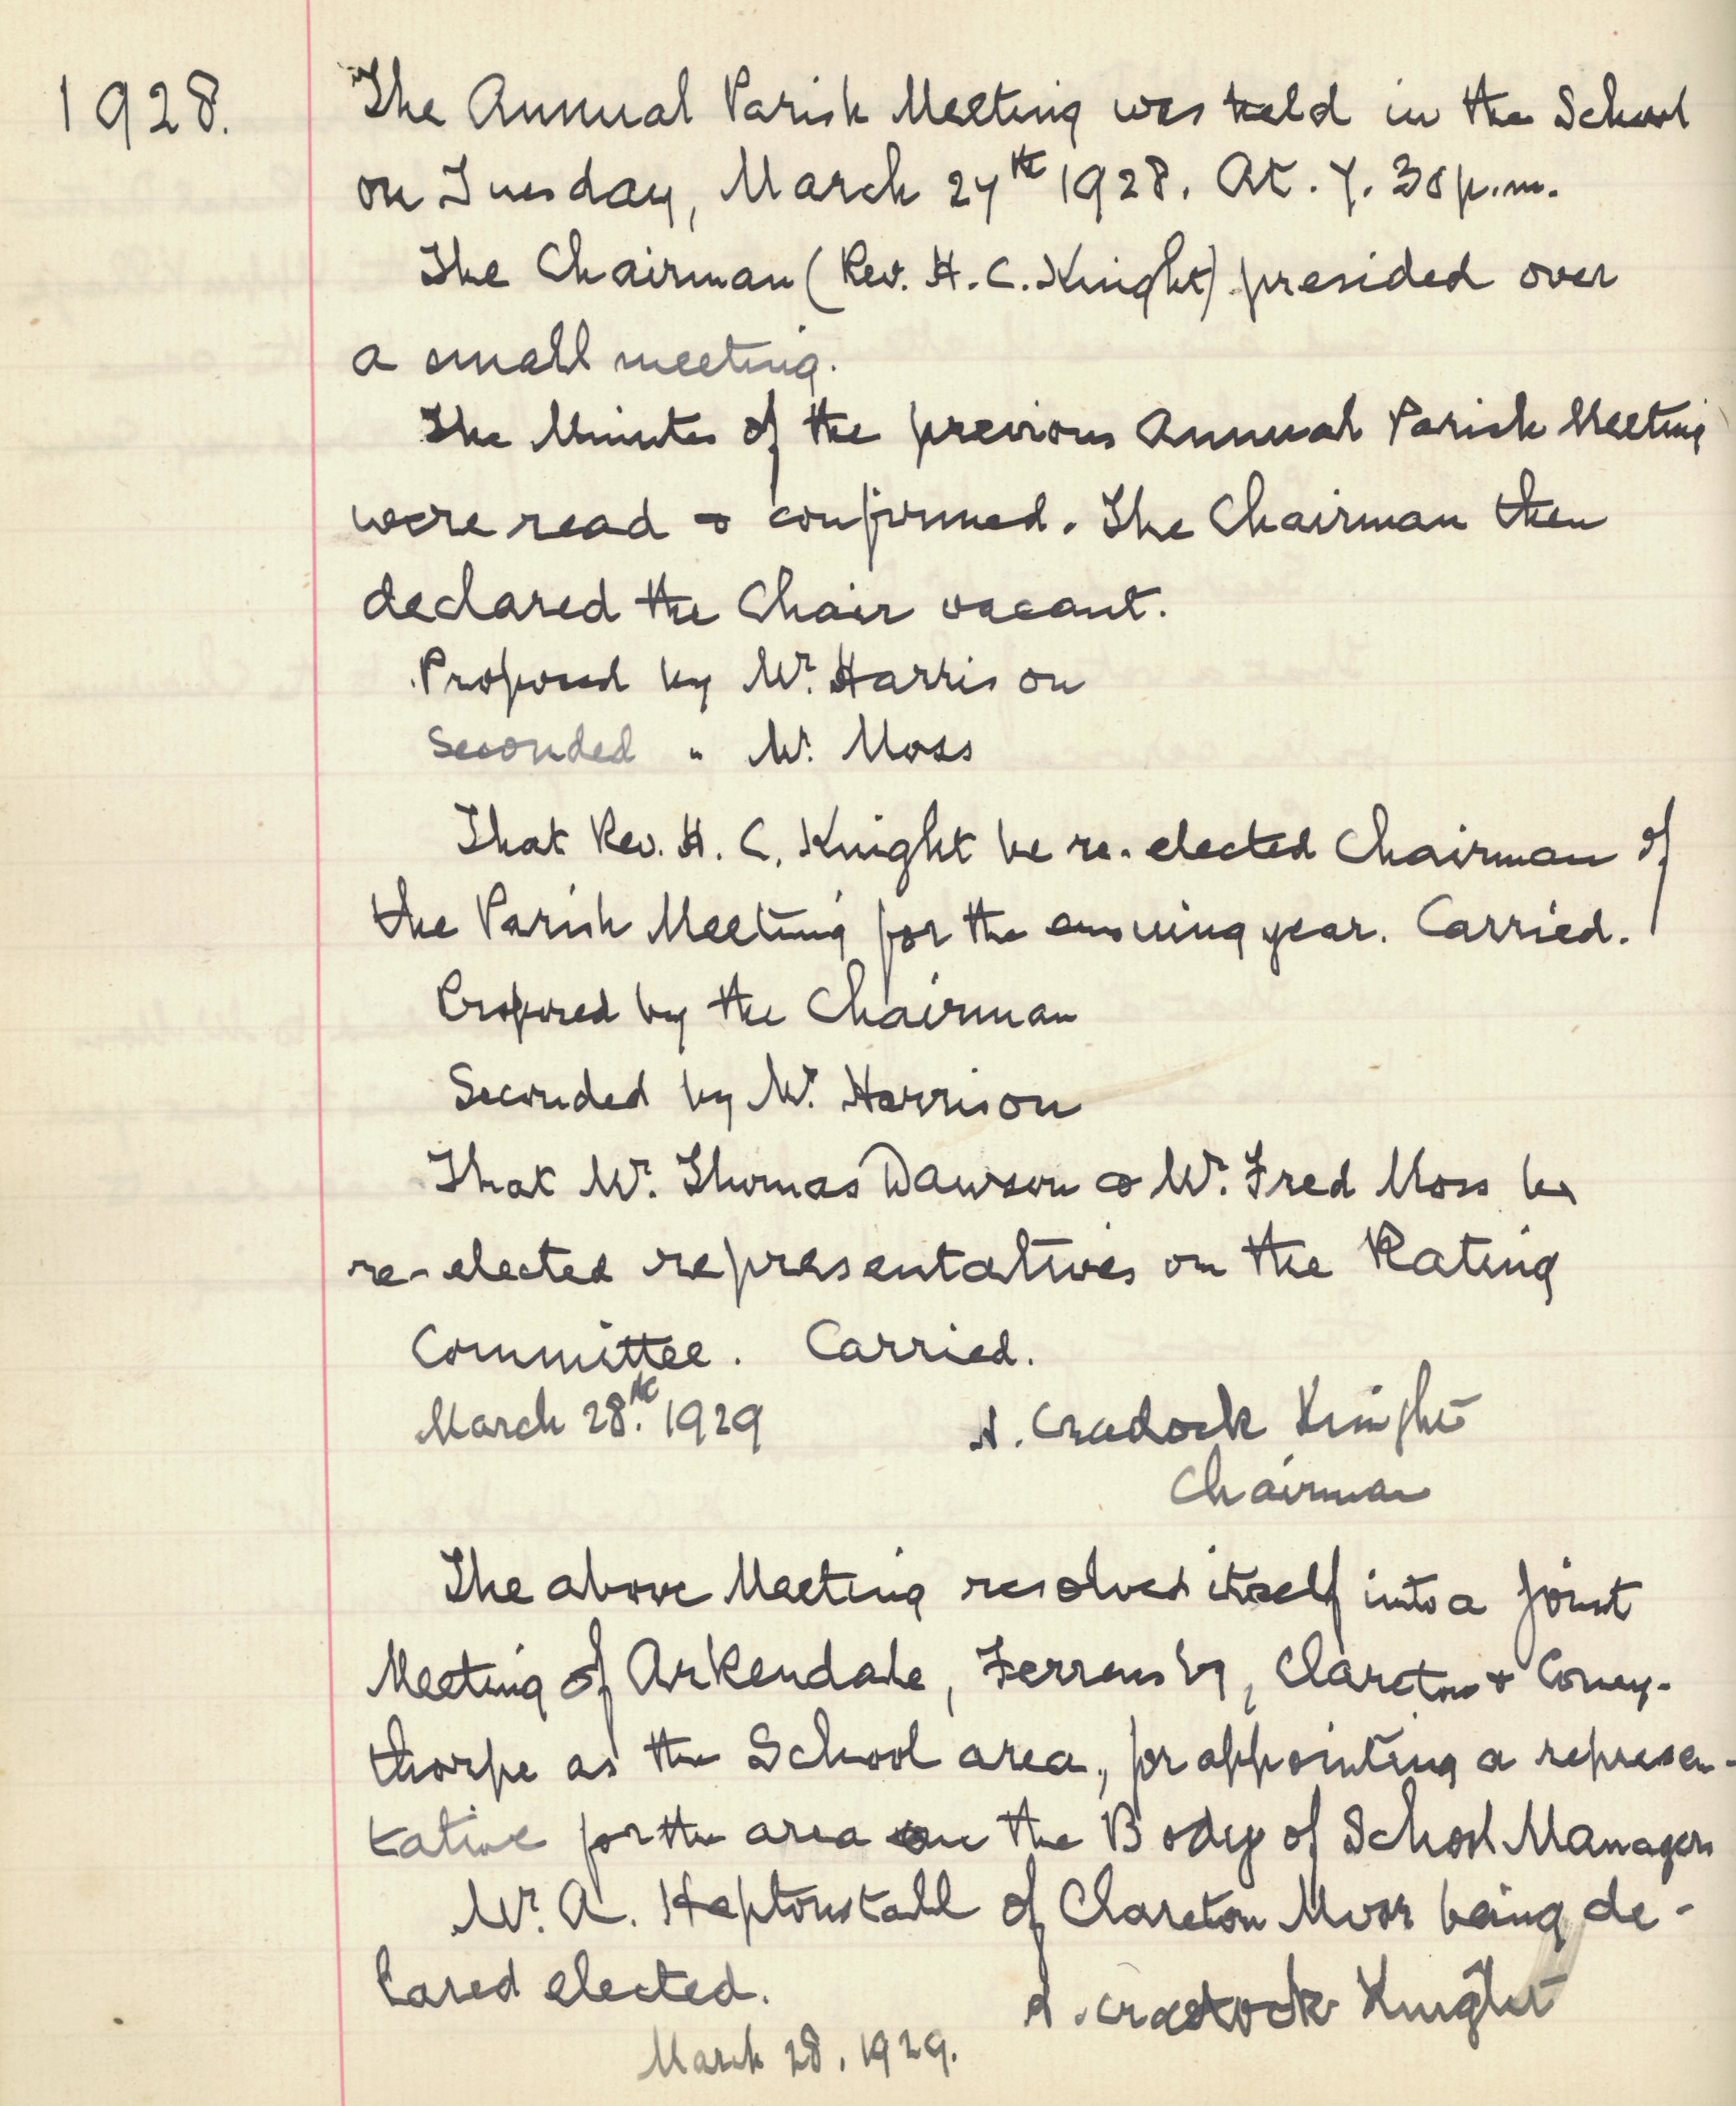 1928.
The Annual Parish Meeting was held in the School
on Tuesday, March 27th 1928. At. 7. 30 p.m.
The Chairman (Rev. H. C. Knight) presided over
a small meeting.
The Minutes of the previous Annual Parish Meeting
were read & confirmed. The Chairman then
declared the Chair vacant.
Proposed by Mr. Harrison
Seconded " Mr. Moss
That Rev. H. C. Knight be re-elected Chairman of
the Parish Meeting for the ensuing year. Carried.
Proposed by the Chairman
Seconded by Mr. Harrison
That Mr. Thomas Dawson & Mr. Fred Moss be
re-elected representatives on the Rating
Committee. Carried.
March 28th. 1929 H. Cradock Knight
Chairman
The above Meeting resolved itself into a Joint
Meeting of Arkendale, Ferrensby, Clareton & Coney-
thorpe as the School area, for appointing a represen-
tative for the area on the Body of School Managers
Mr. A. Heptonstall of Clareton Moor being de-
clared elected. H. Cradock Knight
March 28, 1929.